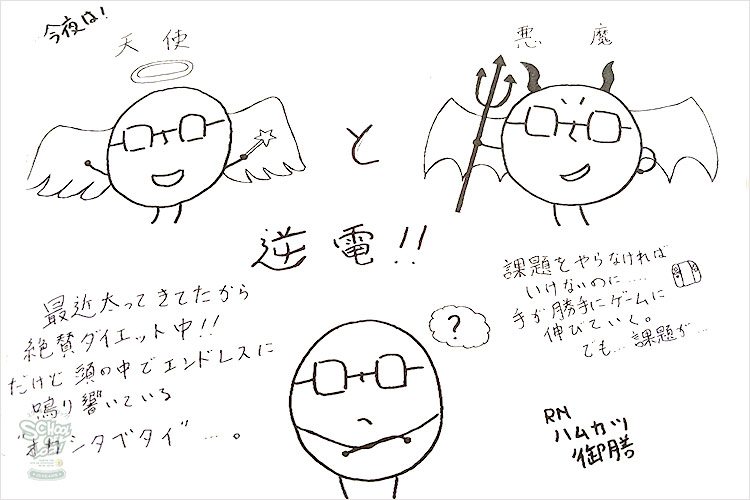 今夜は!
天使
悪魔
と
逆電!!
最近太ってきてたから
絶賛ダイエット中!!
だけど頭の中でエンドレスに
鳴り響いている
オカシタベタイ゛…。
課題をやらなければ
いけないのに……
手が勝手にゲームに
伸びていく。
でも…課題が…
?
RN
ハムカツ
御膳
SCHOOL